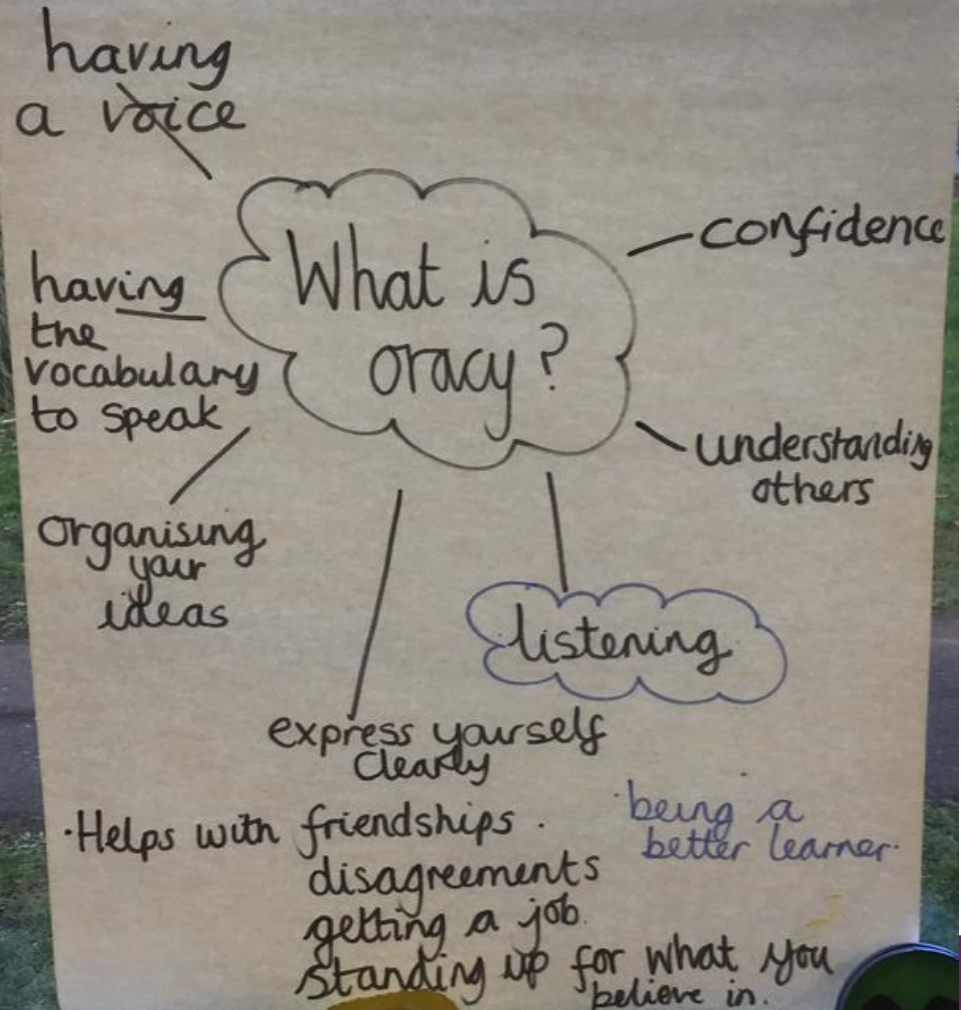 having
a voice
What is
oracy?
confidence
having
the
vocabulary
to speak
understanding
others
organising
your
ideas
listening
express yourself
clearly
·Helps with friendships.
disagreements
getting a job.
standing up for what you
believe in.
·being a
better learner.